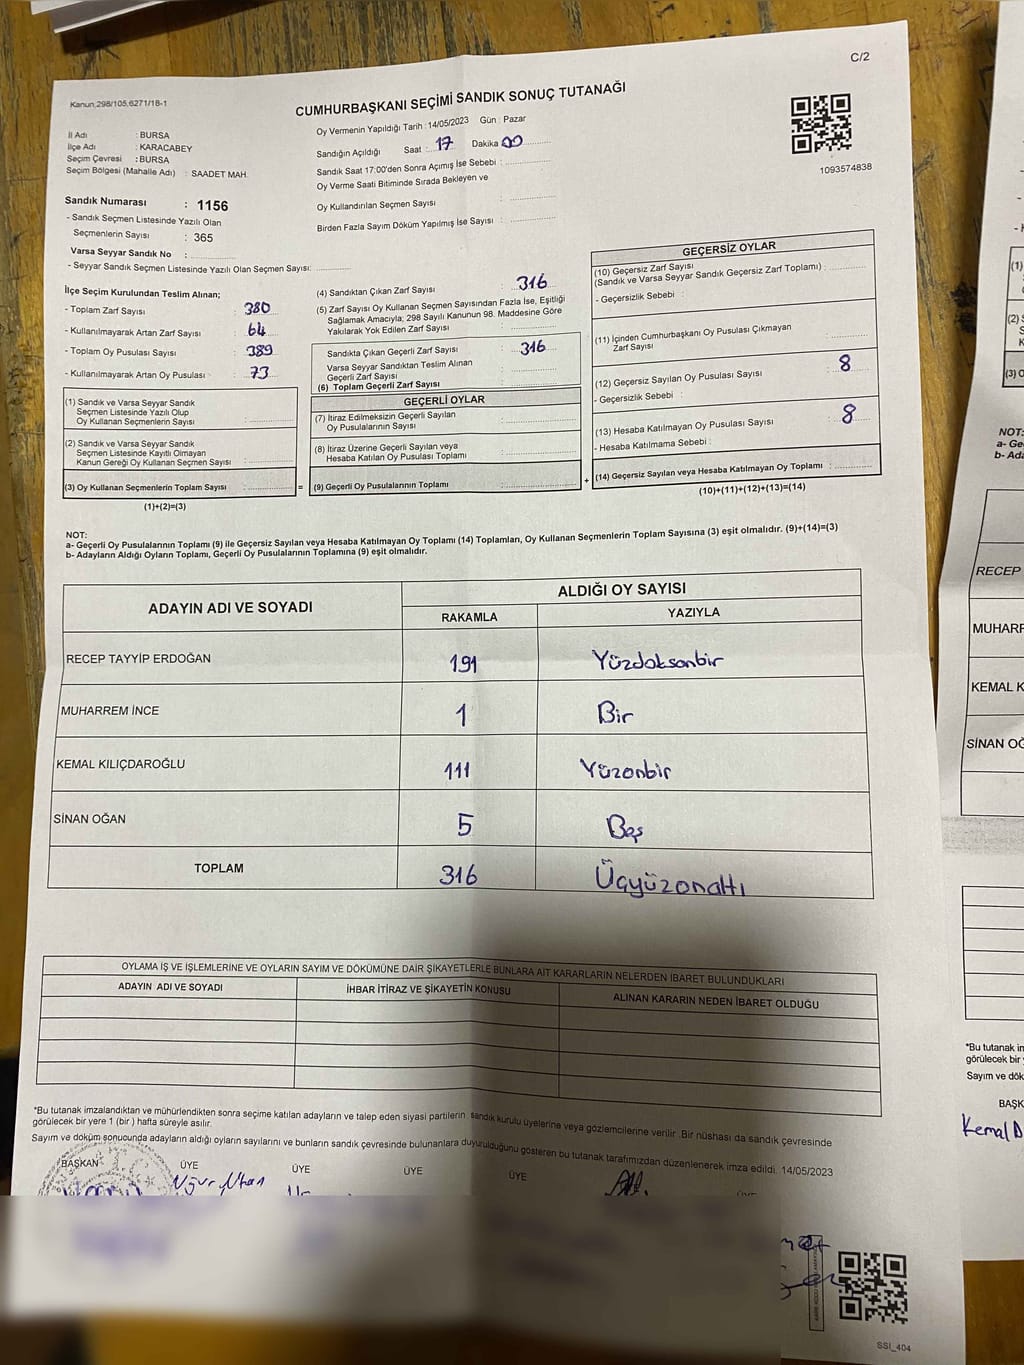 C/2
Kanun;298/105,6271/18-1
CUMHURBAŞKANI SEÇİMİ SANDIK SONUÇ TUTANAĞI
İl Adı : BURSA
İlçe Adı : KARACABEY
Seçim Çevresi : BURSA
Seçim Bölgesi (Mahalle Adı) : SAADET MAH.
Oy Vermenin Yapıldığı Tarih : 14/05/2023 Gün : Pazar
Sandığın Açıldığı Saat : 17 Dakika 00
Sandık Saat 17:00'den Sonra Açımış İse Sebebi :
Oy Verme Saati Bitiminde Sırada Bekleyen ve
Oy Kullandırılan Seçmen Sayısı :
Birden Fazla Sayım Döküm Yapılmış İse Sayısı :
1093574838
Sandık Numarası : 1156
- Sandık Seçmen Listesinde Yazılı Olan
Seçmenlerin Sayısı : 365
Varsa Seyyar Sandık No :
- Seyyar Sandık Seçmen Listesinde Yazılı Olan Seçmen Sayısı:
İlçe Seçim Kurulundan Teslim Alınan;
- Toplam Zarf Sayısı : 380
- Kullanılmayarak Artan Zarf Sayısı : 64
- Toplam Oy Pusulası Sayısı : 389
- Kullanılmayarak Artan Oy Pusulası : 73
(1) Sandık ve Varsa Seyyar Sandık
Seçmen Listesinde Yazılı Olup
Oy Kullanan Seçmenlerin Sayısı :
(2) Sandık ve Varsa Seyyar Sandık
Seçmen Listesinde Kayıtlı Olmayan
Kanun Gereği Oy Kullanan Seçmen Sayısı :
(3) Oy Kullanan Seçmenlerin Toplam Sayısı :
(1)+(2)=(3)
=
(4) Sandıktan Çıkan Zarf Sayısı : 316
(5) Zarf Sayısı Oy Kullanan Seçmen Sayısından Fazla İse, Eşitliği
Sağlamak Amacıyla; 298 Sayılı Kanunun 98. Maddesine Göre
Yakılarak Yok Edilen Zarf Sayısı :
Sandıkta Çıkan Geçerli Zarf Sayısı : 316
Varsa Seyyar Sandıktan Teslim Alınan
Geçerli Zarf Sayısı :
(6) Toplam Geçerli Zarf Sayısı :
GEÇERLİ OYLAR
(7) İtiraz Edilmeksizin Geçerli Sayılan
Oy Pusulalarının Sayısı :
(8) İtiraz Üzerine Geçerli Sayılan veya
Hesaba Katılan Oy Pusulası Toplamı :
(9) Geçerli Oy Pusulalarının Toplamı :
+
GEÇERSİZ OYLAR
(10) Geçersiz Zarf Sayısı
(Sandık ve Varsa Seyyar Sandık Geçersiz Zarf Toplamı) :
- Geçersizlik Sebebi :
(11) İçinden Cumhurbaşkanı Oy Pusulası Çıkmayan
Zarf Sayısı :
(12) Geçersiz Sayılan Oy Pusulası Sayısı : 8
- Geçersizlik Sebebi :
(13) Hesaba Katılmayan Oy Pusulası Sayısı : 8
- Hesaba Katılmama Sebebi :
(14) Geçersiz Sayılan veya Hesaba Katılmayan Oy Toplamı :
(10)+(11)+(12)+(13)=(14)
NOT:
a- Geçerli Oy Pusulalarının Toplamı (9) ile Geçersiz Sayılan veya Hesaba Katılmayan Oy Toplamı (14) Toplamları, Oy Kullanan Seçmenlerin Toplam Sayısına (3) eşit olmalıdır. (9)+(14)=(3)
b- Adayların Aldığı Oyların Toplamı, Geçerli Oy Pusulalarının Toplamına (9) eşit olmalıdır.
ADAYIN ADI VE SOYADI ALDIĞI OY SAYISI
RAKAMLA YAZIYLA
RECEP TAYYİP ERDOĞAN 191 Yüzdoksanbir
MUHARREM İNCE 1 Bir
KEMAL KILIÇDAROĞLU 111 Yüzonbir
SİNAN OĞAN 5 Beş
TOPLAM 316 Üçyüzonaltı
OYLAMA İŞ VE İŞLEMLERİNE VE OYLARIN SAYIM VE DÖKÜMÜNE DAİR ŞİKAYETLERLE BUNLARA AİT KARARLARIN NELERDEN İBARET BULUNDUKLARI
ADAYIN ADI VE SOYADI İHBAR İTİRAZ VE ŞİKAYETİN KONUSU ALINAN KARARIN NEDEN İBARET OLDUĞU
*Bu tutanak imzalandıktan ve mühürlendikten sonra seçime katılan adayların ve talep eden siyasi partilerin sandık kurulu üyelerine veya gözlemcilerine verilir .Bir nüshası da sandık çevresinde
görülecek bir yere 1 (bir ) hafta süreyle asılır.
Sayım ve döküm sonucunda adayların aldığı oyların sayılarını ve bunların sandık çevresinde bulunanlara duyurulduğunu gösteren bu tutanak tarafımızdan düzenlenerek imza edildi. 14/05/2023
BAŞKAN ÜYE ÜYE ÜYE ÜYE
Uğur
SSİ_404
(1)
(2)
(3)
NOT:
a- Ge
b- Ada
RECEP
MUHARR
KEMAL K
SİNAN OĞ
*Bu tutanak im
görülecek bir
Sayım ve dök
BAŞK
Kemal